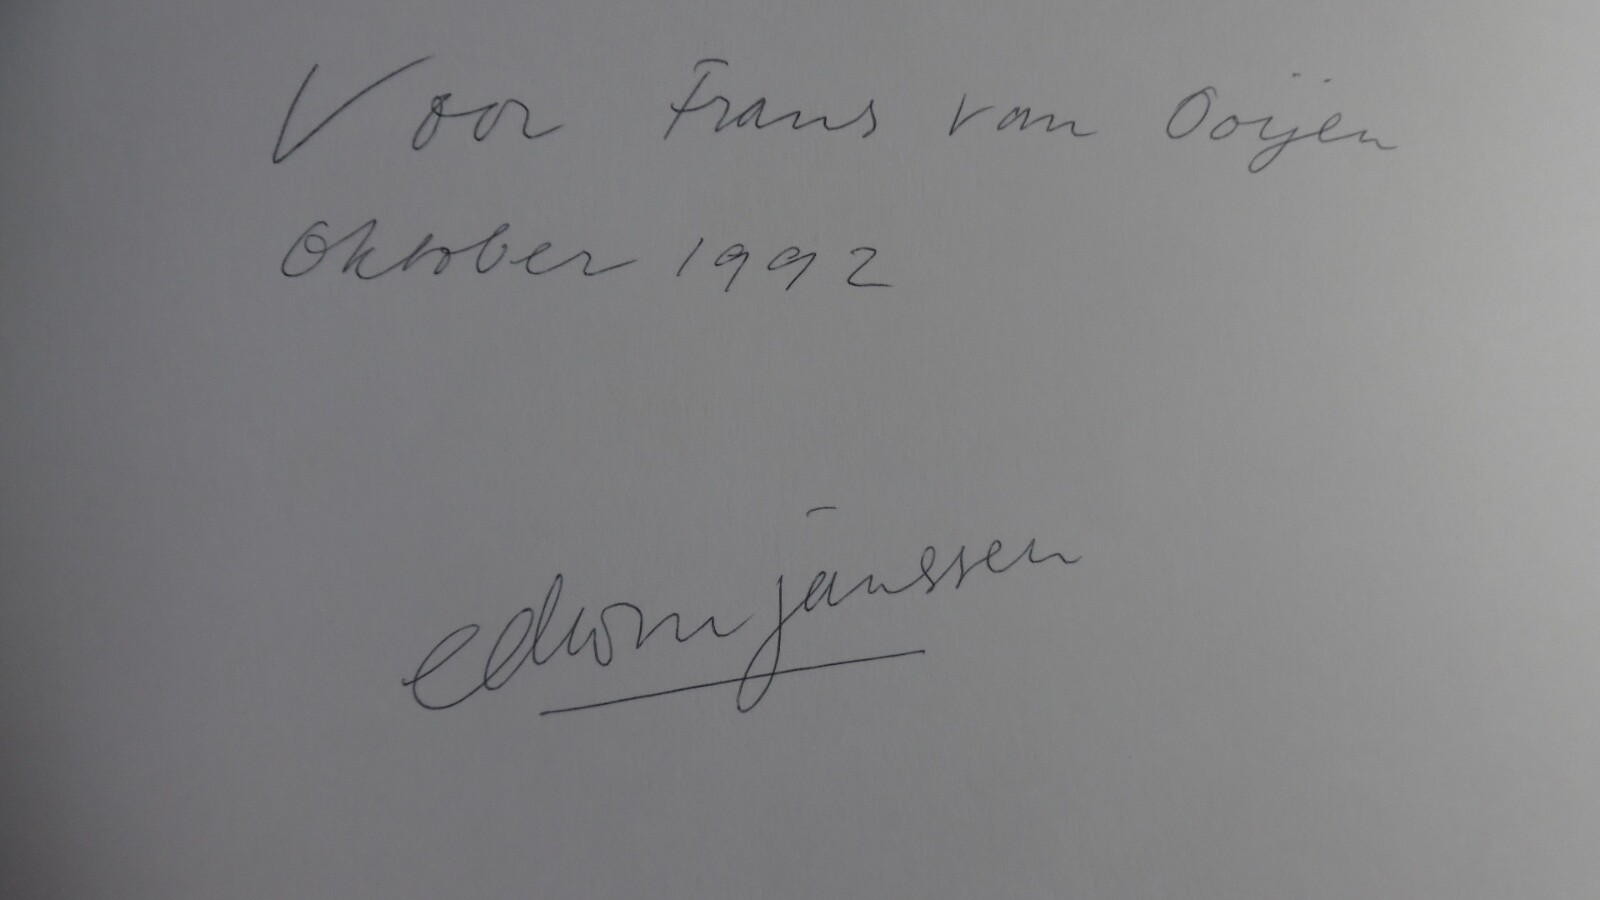 Voor Frans van Ooijen
Oktober 1992
edwin janssen